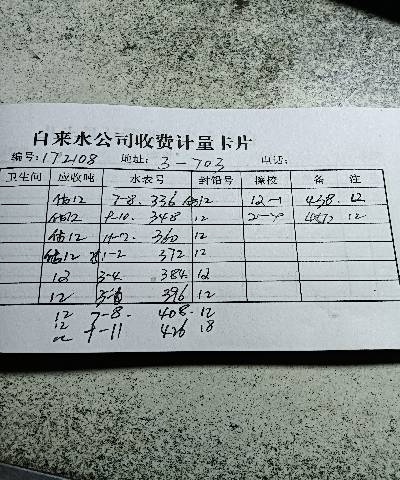 自来水公司收费计量卡片
编号:172108 地址: 3-703 电话:
卫生间 应收吨 水表号 封铅号 换校 备注
估12 7-8. 336 估12 12-1 438. 12
估12 9-10. 348 12
估12 11-12 360 12
估12 1-2 372 12
12 3-4 384 12
12 396 12
12 7-8. 408. 12
12 9-11 426 18